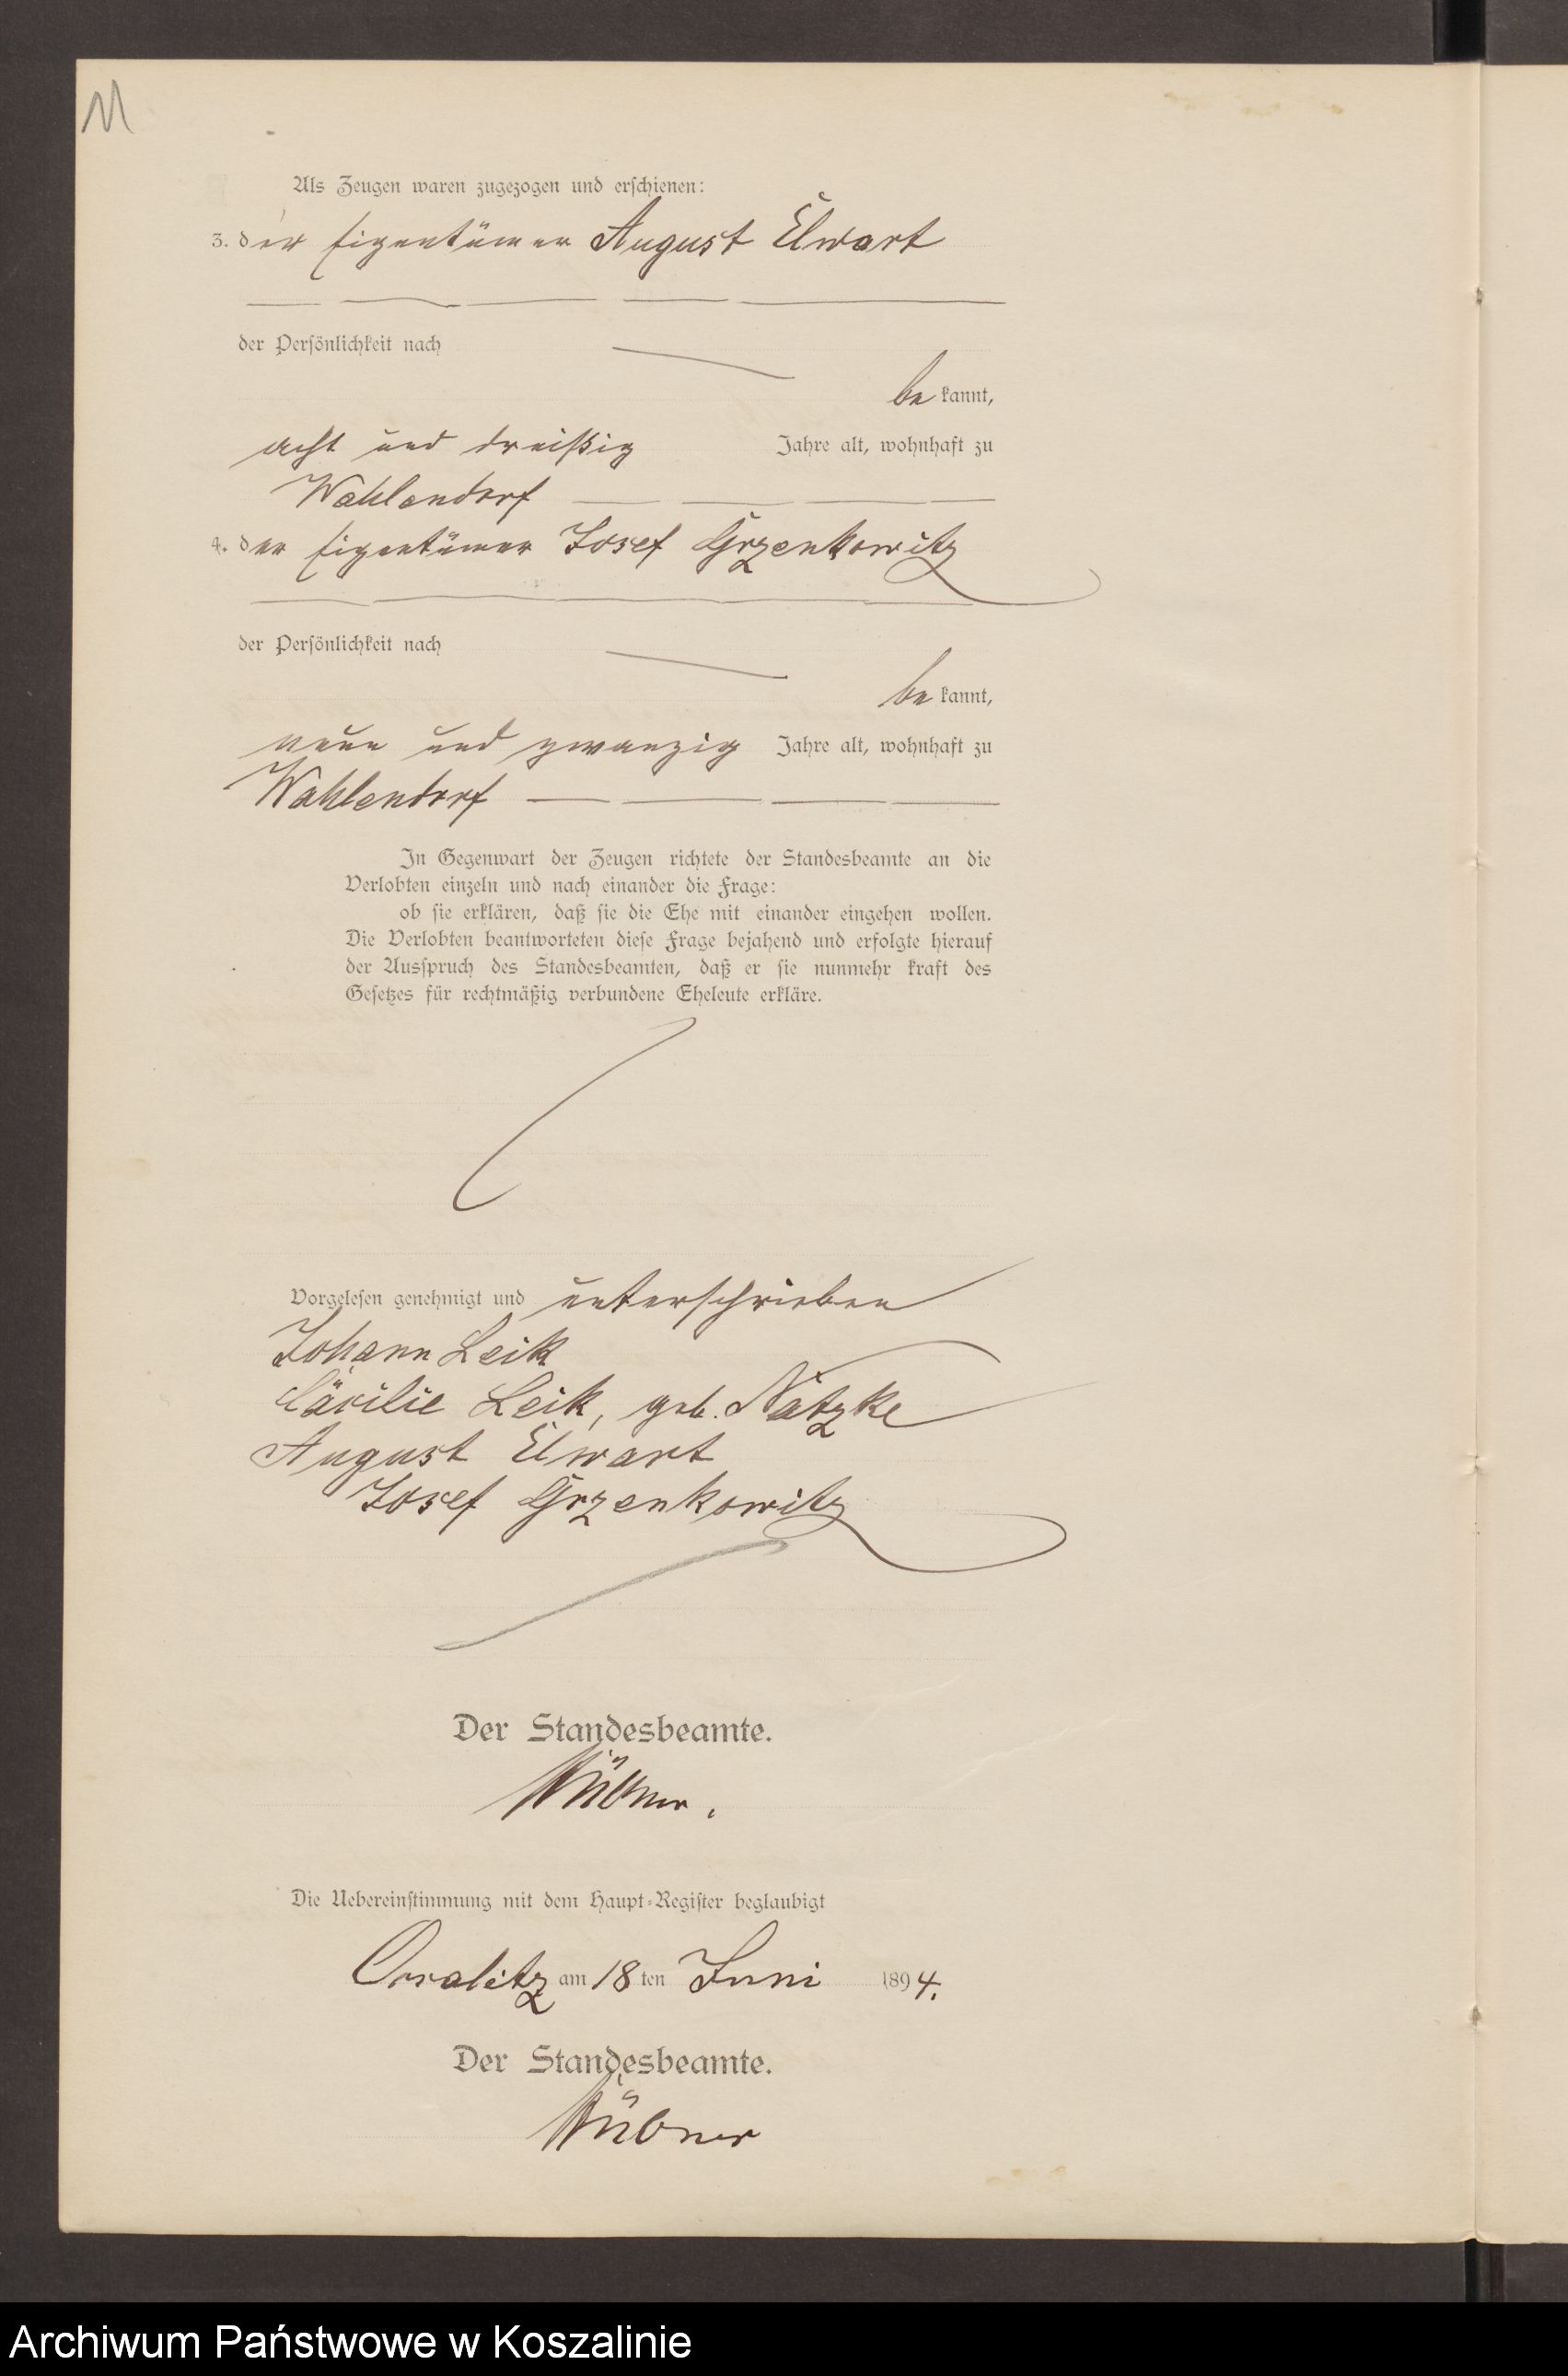 11
Als Zeugen waren zugezogen und erschienen:
3. der Eigentümer August Elwart
der Persönlichkeit nach
be kannt,
acht und dreißig Jahre alt, wohnhaft zu
Wahlendorf
4. der Eigentümer Josef Grzenkowitz
der Persönlichkeit nach
be kannt,
neun und zwanzig Jahre alt, wohnhaft zu
Wahlendorf
In Gegenwart der Zeugen richtete der Standesbeamte an die
Verlobten einzeln und nach einander die Frage:
ob sie erklären, daß sie die Ehe mit einander eingehen wollen.
Die Verlobten beantworteten diese Frage bejahend und erfolgte hierauf
der Ausspruch des Standesbeamten, daß er sie nunmehr kraft des
Gesetzes für rechtmäßig verbundene Eheleute erkläre.
Vorgelesen genehmigt und unterschrieben
Johann Leik
Cäcilie Leik, geb. Natzke
August Elwart
Josef Grzenkowitz
Der Standesbeamte.
Die Uebereinstimmung mit dem Haupt-Register beglaubigt
am 18 ten Juni 1894.
Der Standesbeamte.
Archiwum Państwowe w Koszalinie